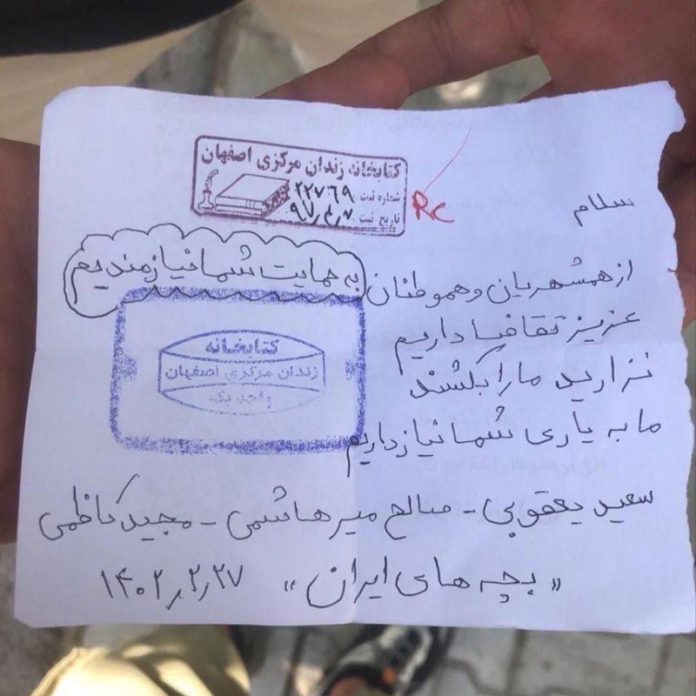 کتابخانه زندان مرکزی اصفهان
شماره ثبت ۲۲۷۶۹
تاریخ ثبت ۹۷٫۴٫۷
Rc
سلام
از همشهریان و هموطنان به حمایت شما نیازمندیم
عزیز تقاضا داریم
نزارید ما را بکشند
ما به یاری شما نیاز داریم
کتابخانه
زندان مرکزی اصفهان
واحد یک
سعید یعقوبی - صالح میرهاشمی - مجید کاظمی
«بچه های ایران» ۱۴۰۲٫۲٫۲۷